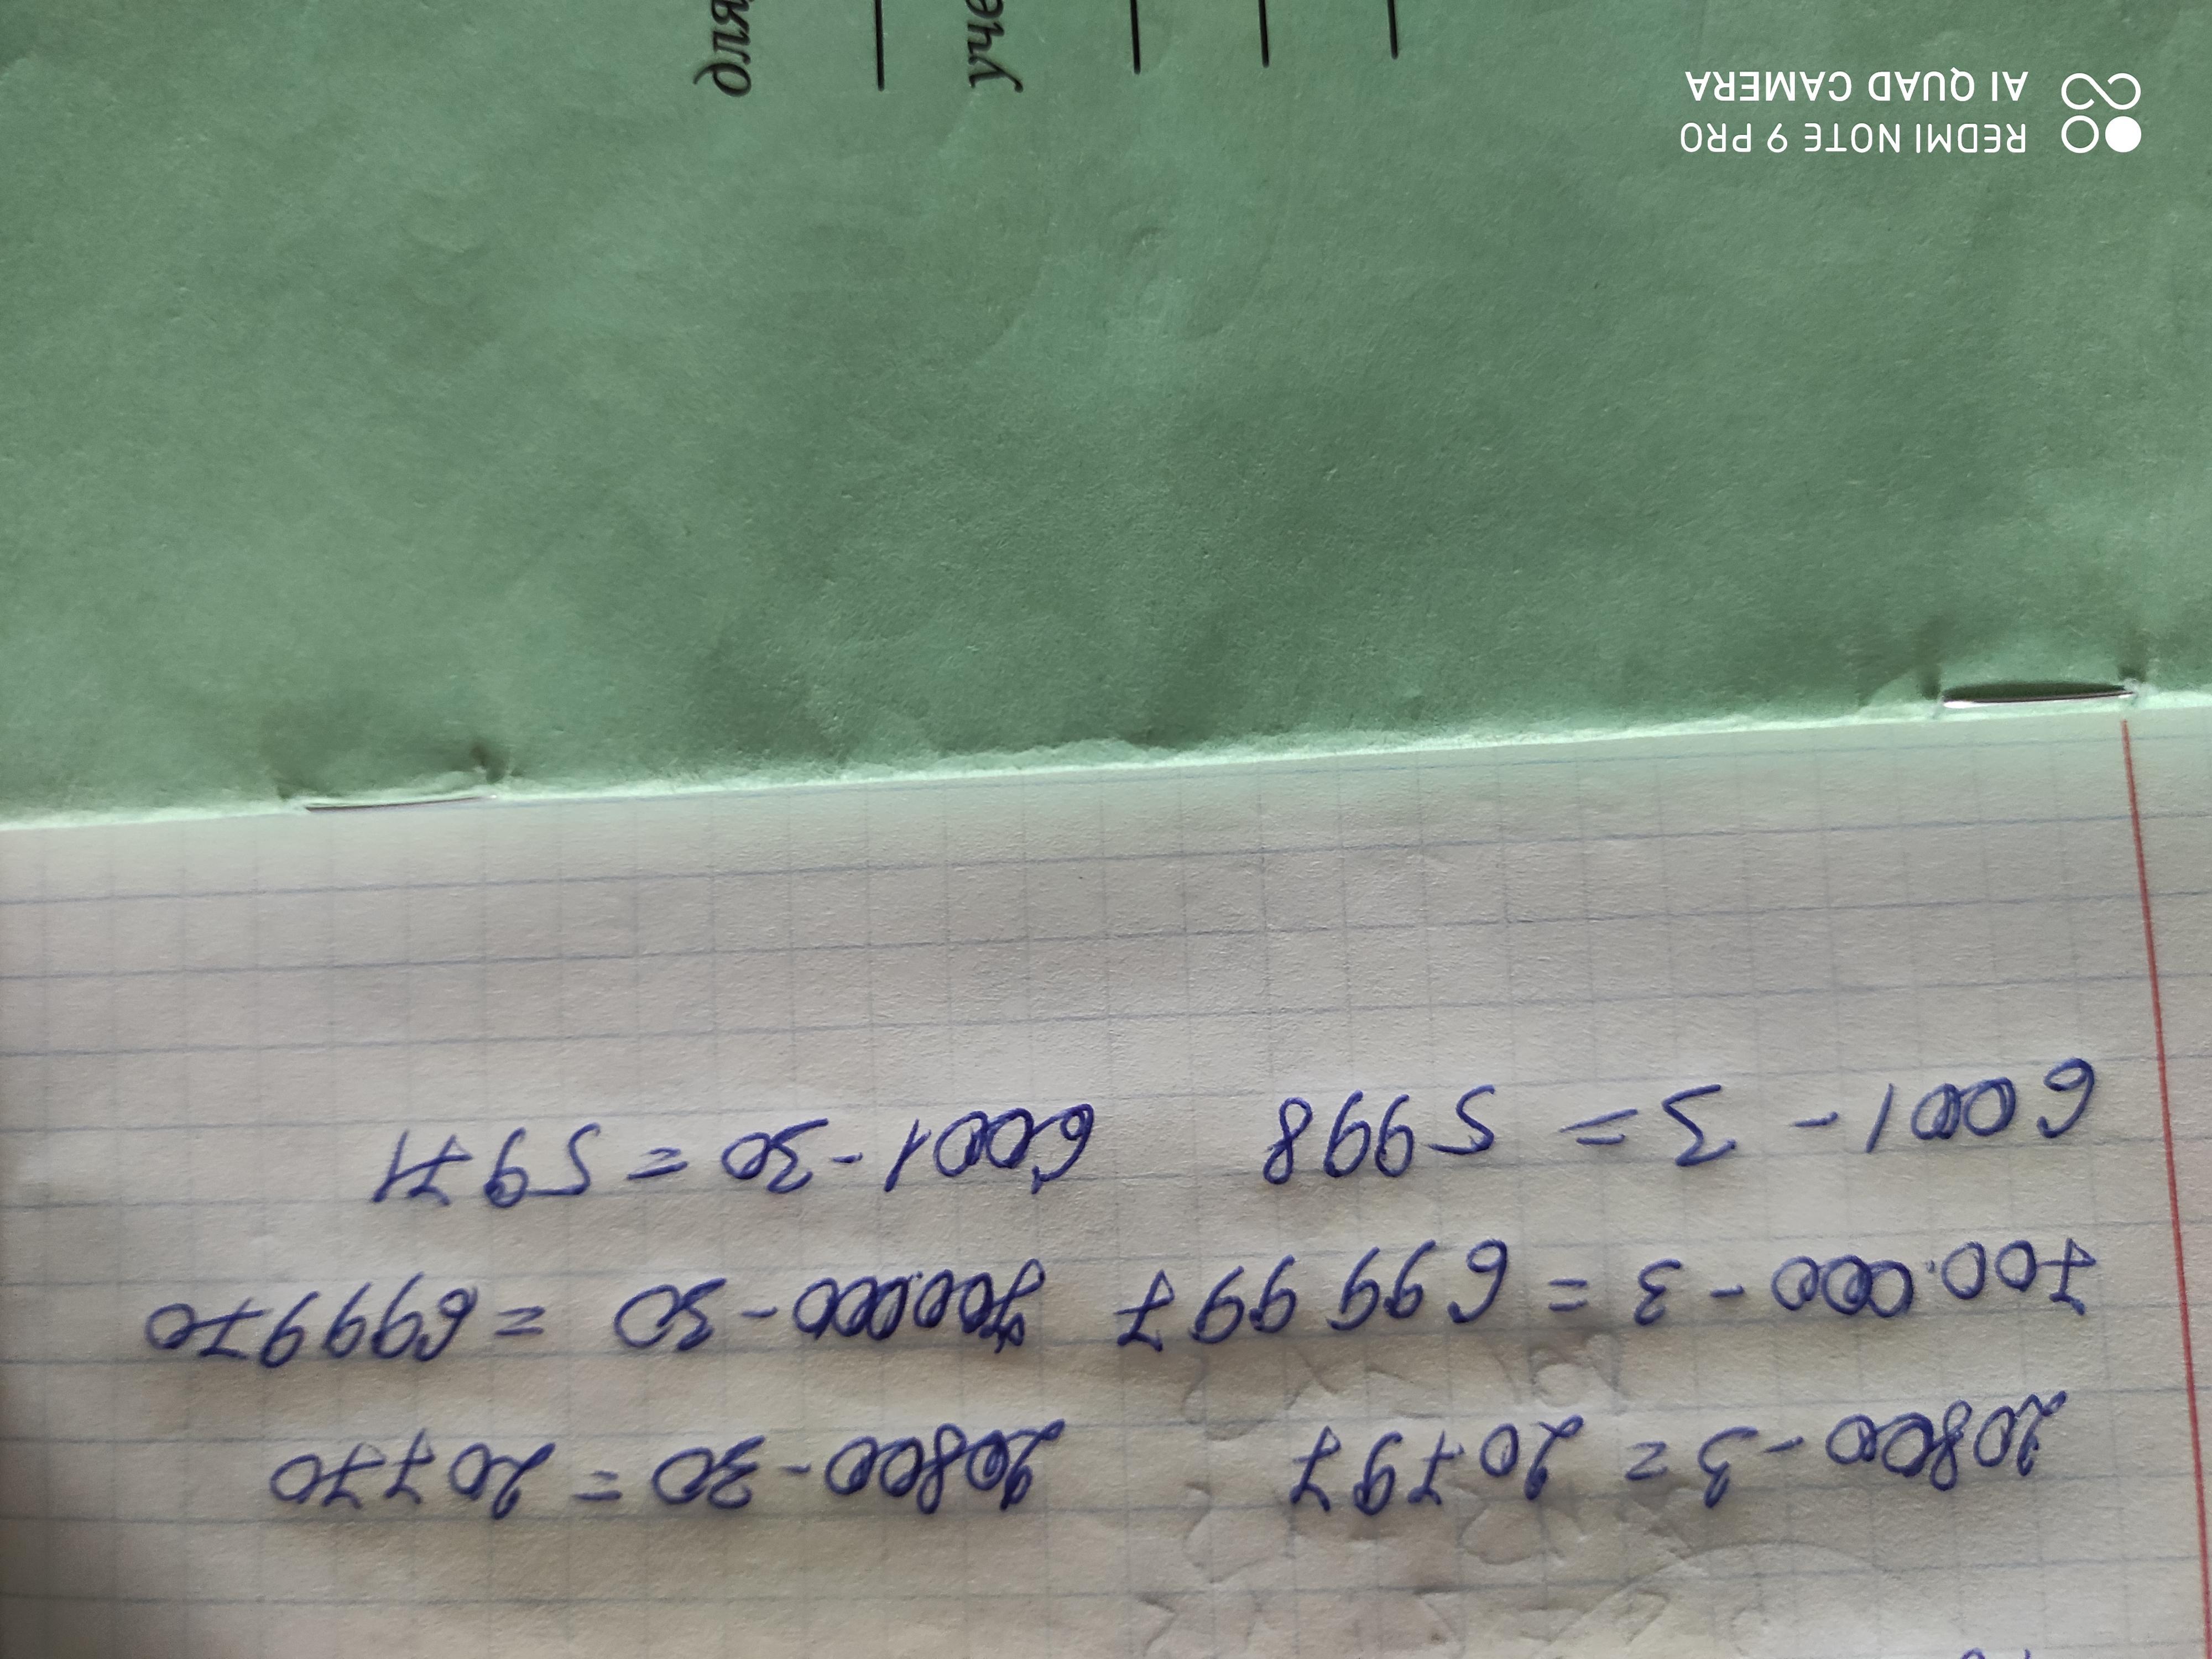 20800 - 3 = 20797 20800 - 30 = 20770
700.000 - 3 = 699 997 700.000 - 30 = 699970
6001 - 3 = 5998 6001 - 30 = 5971
для
уче
REDMI NOTE 9 PRO
AI QUAD CAMERA